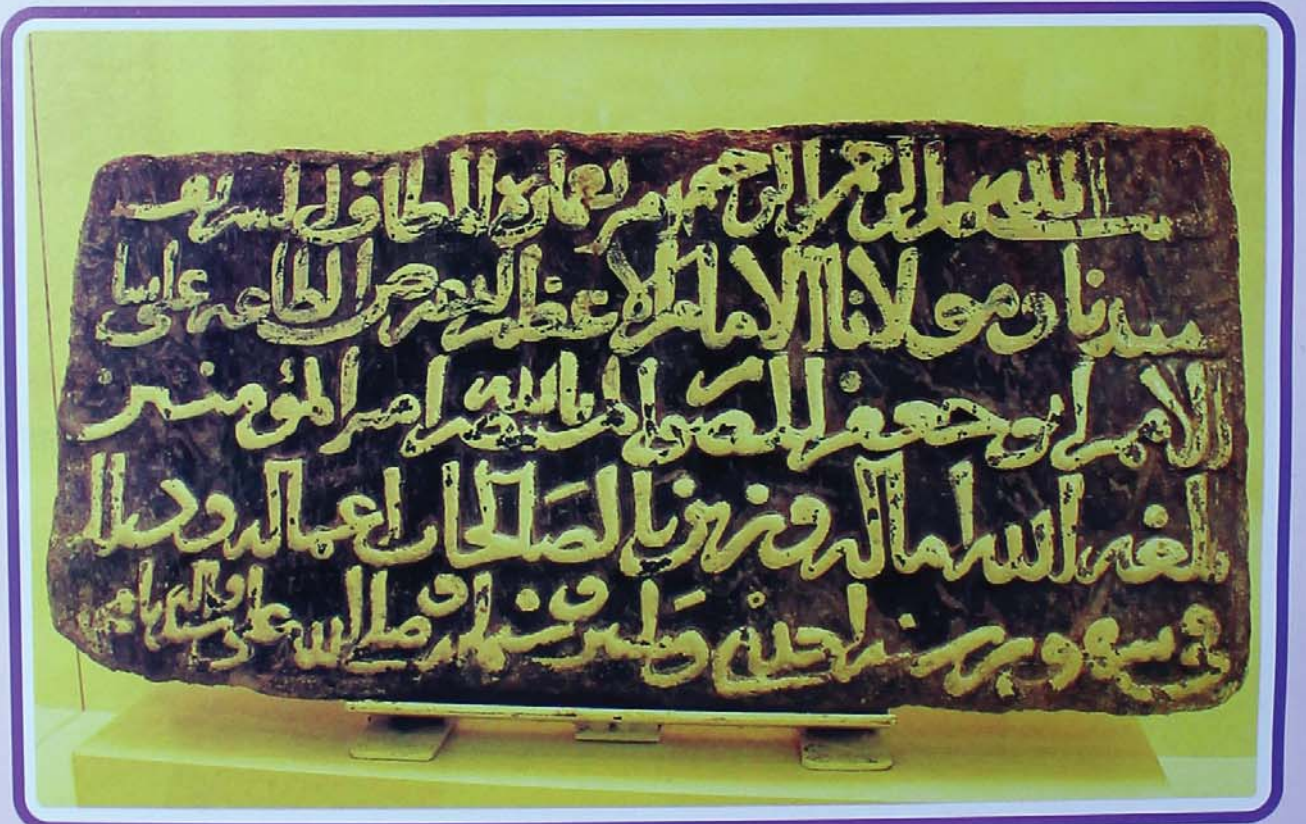 بسم الله الرحمن الرحيم امر بعمارة المطاف الشريف
سيدنا ومولانا الامام الاعظم المفترض الطاعة على سائر
الامم ابو جعفر المنصور المستنصر بالله امير المؤمنين
بلغه الله اماله وزين بالصالحات اعماله وذلك
في شهور سنة احدى وثلثين وستمائة وصلى الله على سيدنا